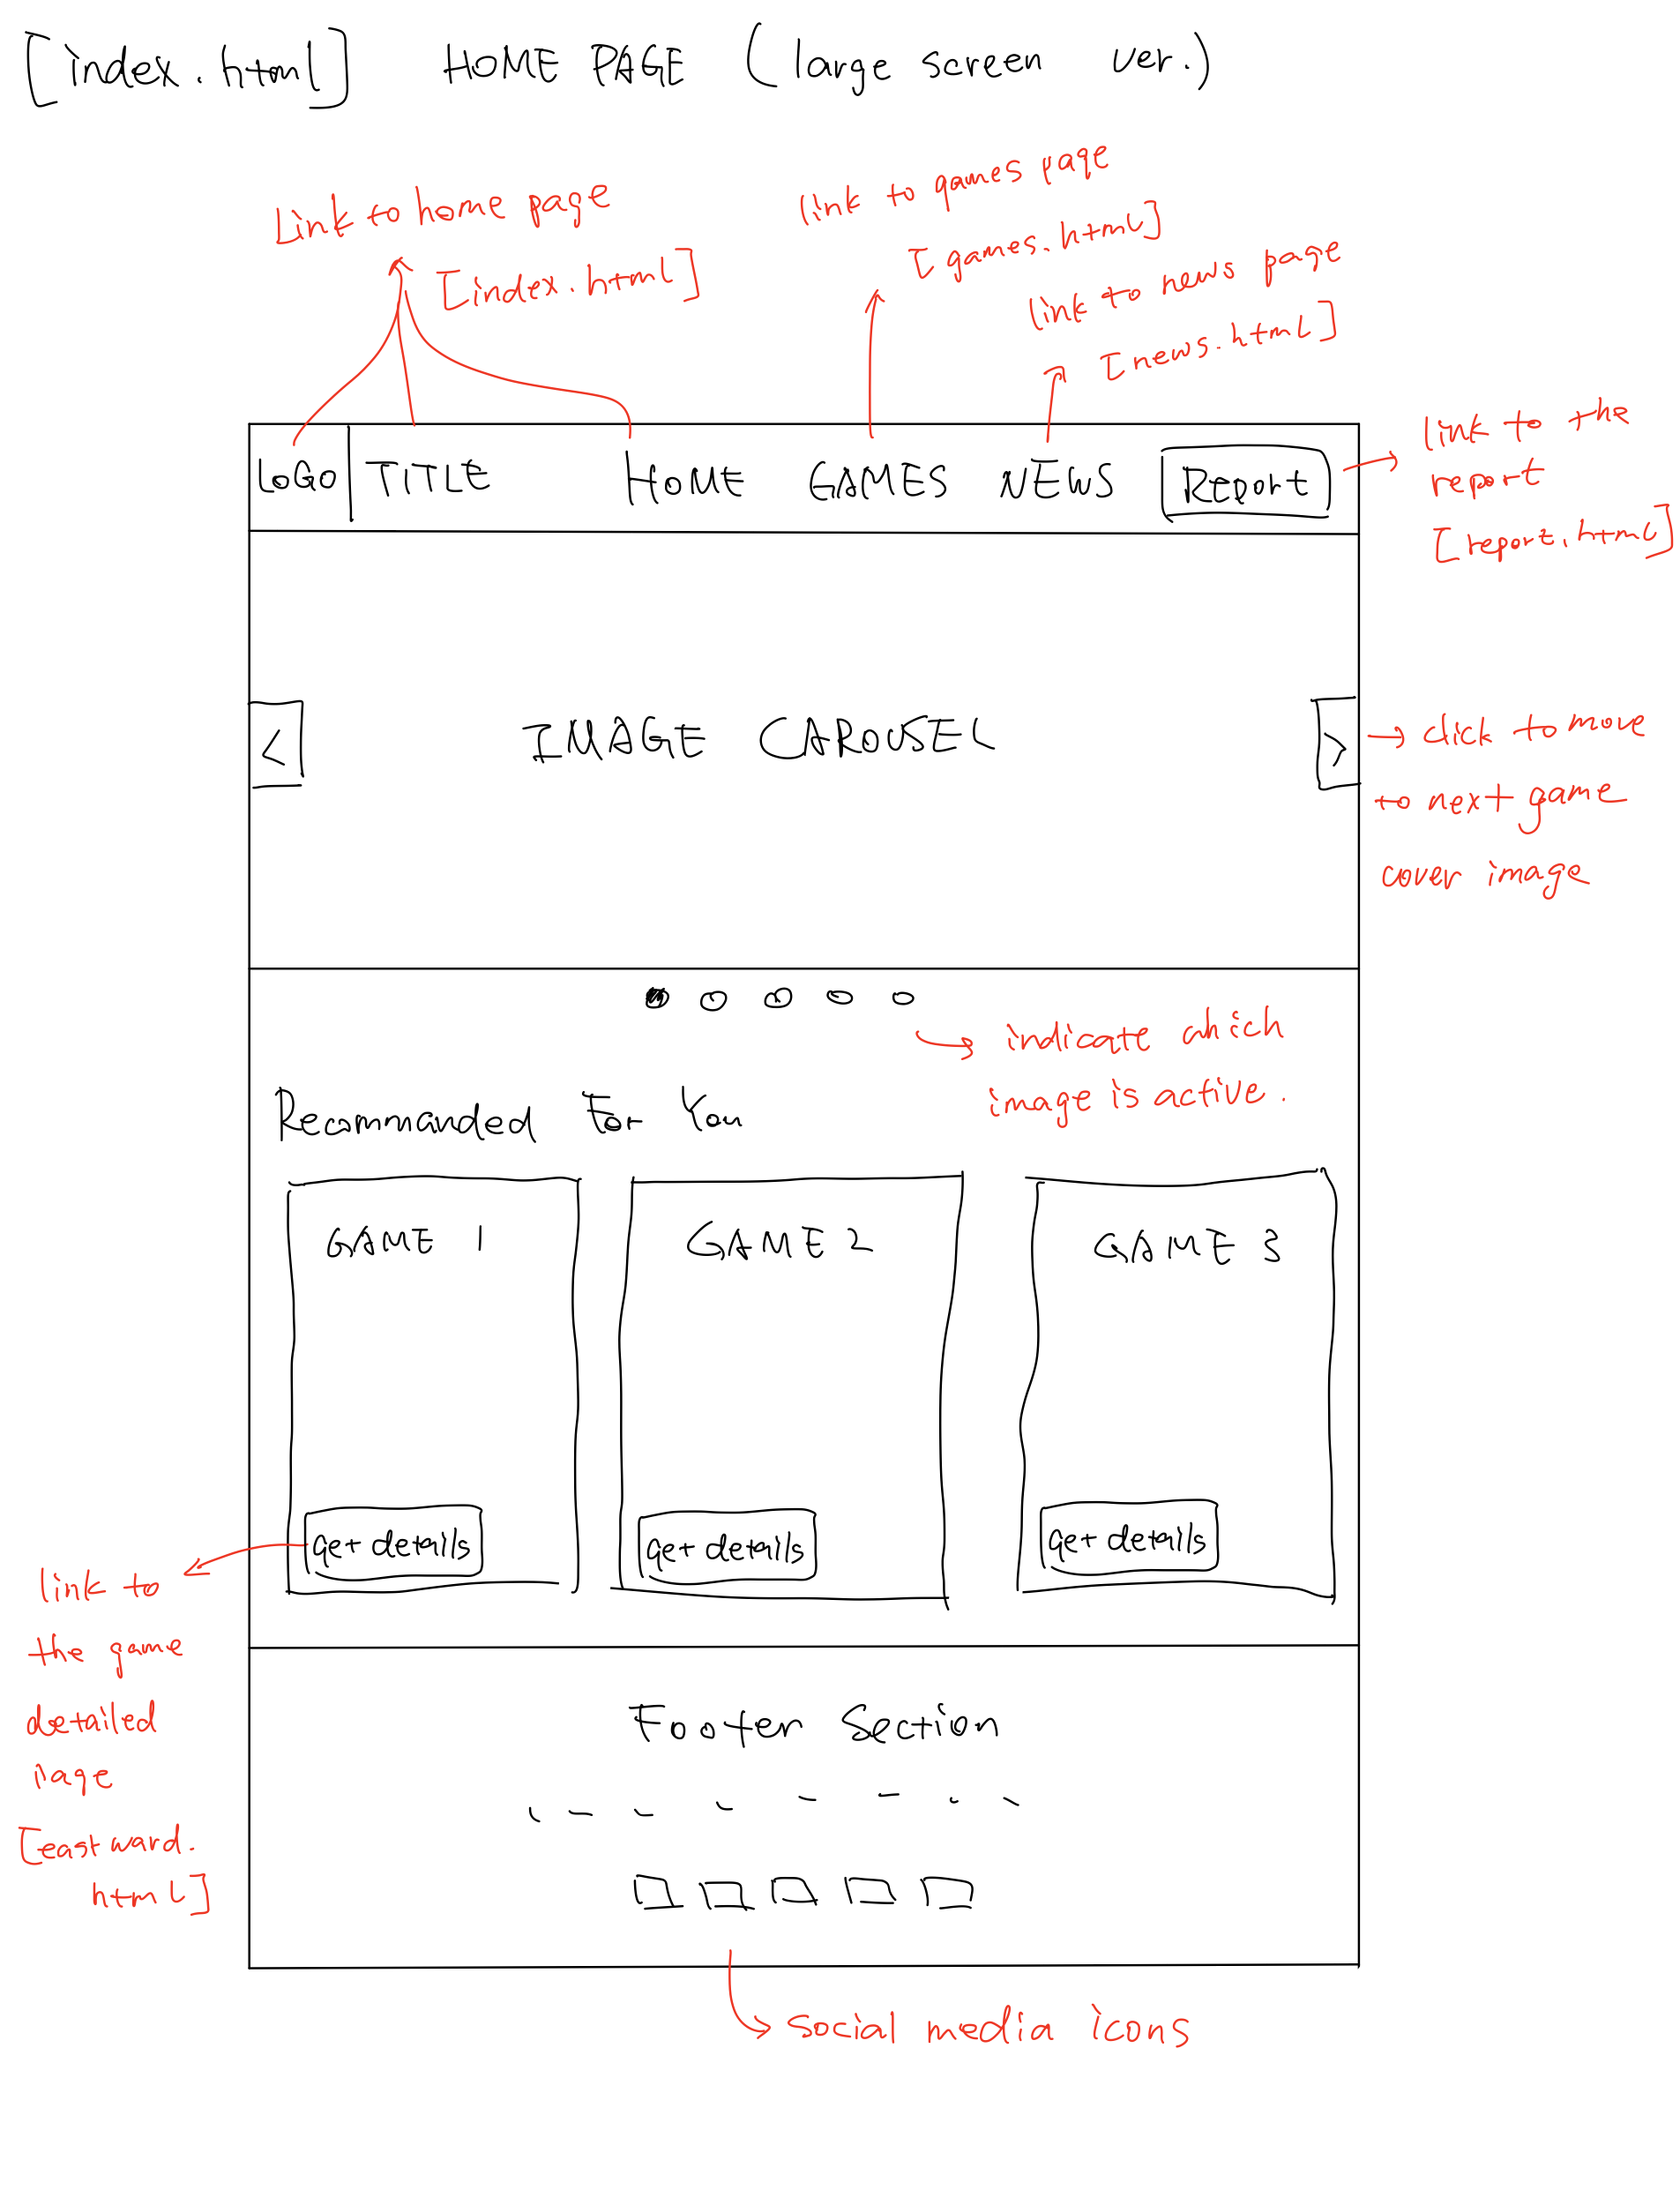 [index.html] HOME PAGE (large screen ver.)
Link to home page
[index.html]
link to games page
[games.html]
link to news page
[news.html]
LOGO TITLE HOME GAMES NEWS Report
link to the
report
[report.html]
< IMAGE CAROUSEL >
click to move
to next game
cover image
indicate which
image is active.
Recommanded For You
GAME 1 GAME 2 GAME 3
get details get details get details
link to
the game
detailed
page
[eastward.
html]
Footer Section
social media icons